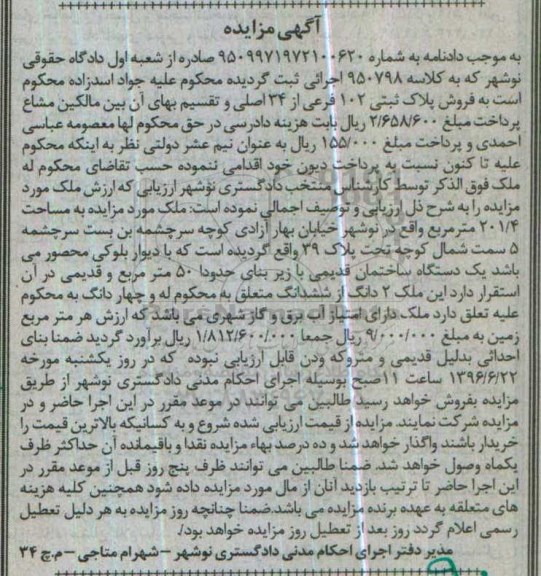 آگهی مزایده
به موجب دادنامه به شماره ۹۵۰۹۹۷۱۹۷۲۱۰۰۶۲۰ صادره از شعبه اول دادگاه حقوقی
نوشهر که به کلاسه ۹۵۰۷۹۸ اجرائی ثبت گردیده محکوم علیه جواد اسدزاده محکوم
است به فروش پلاک ثبتی ۱۰۲ فرعی از ۳۴ اصلی و تقسیم بهای آن بین مالکین مشاع
پرداخت مبلغ ۲/۶۵۸/۶۰۰ ریال بابت هزینه دادرسی در حق محکوم لها معصومه عباسی
احمدی و پرداخت مبلغ ۱۵۵/۰۰۰ ریال به عنوان نیم عشر دولتی نظر به اینکه محکوم
علیه تا کنون نسبت به پرداخت دیون خود اقدامی ننموده حسب تقاضای محکوم له
ملک فوق الذکر توسط کارشناس منتخب دادگستری نوشهر ارزیابی که ارزش ملک مورد
مزایده را به شرح ذل ارزیابی و توصیف اجمالی نموده است: ملک مورد مزایده به مساحت
۲۰۱/۴ مترمربع واقع در نوشهر خیابان بهار آزادی کوچه سرچشمه بن بست سرچشمه
۵ سمت شمال کوچه تحت پلاک ۳۹ واقع گردیده است که با دیوار بلوکی محصور می
باشد یک دستگاه ساختمان قدیمی با زیر بنای حدودا ۵۰ متر مربع و قدیمی در آن
استقرار دارد این ملک ۲ دانگ از ششدانگ متعلق به محکوم له و چهار دانگ به محکوم
علیه تعلق دارد ملک دارای امتیاز آب برق و گاز شهری می باشد که ارزش هر متر مربع
زمین به مبلغ ۹/۰۰۰/۰۰۰ ریال جمعا ۱/۸۱۲/۶۰۰/۰۰۰ ریال براورد گردید ضمنا بنای
احداثی بدلیل قدیمی و متروکه ودن قابل ارزیابی نبوده که در روز یکشنبه مورخه
۱۳۹۶/۶/۲۲ ساعت ۱۱صبح بوسیله اجرای احکام مدنی دادگستری نوشهر از طریق
مزایده بفروش خواهد رسید طالبین می توانند در موعد مقرر در این اجرا حاضر و در
مزایده شرکت نمایند. مزایده از قیمت ارزیابی شده شروع و به کسانیکه بالاترین قیمت را
خریدار باشند واگذار خواهد شد و ده درصد بهاء مزایده نقدا و باقیمانده آن حداکثر ظرف
یکماه وصول خواهد شد. ضمنا طالبین می توانند ظرف پنج روز قبل از موعد مقرر در
این اجرا حاضر تا ترتیب بازدید آنان از مال مورد مزایده داده شود همچنین کلیه هزینه
های متعلقه به عهده برنده مزایده می باشد.ضمنا چنانچه روز مزایده به هر دلیل تعطیل
رسمی اعلام گردد روز بعد از تعطیل روز مزایده خواهد بود/.
مدیر دفتر اجرای احکام مدنی دادگستری نوشهر – شهرام متاجی – م.چ ۳۴